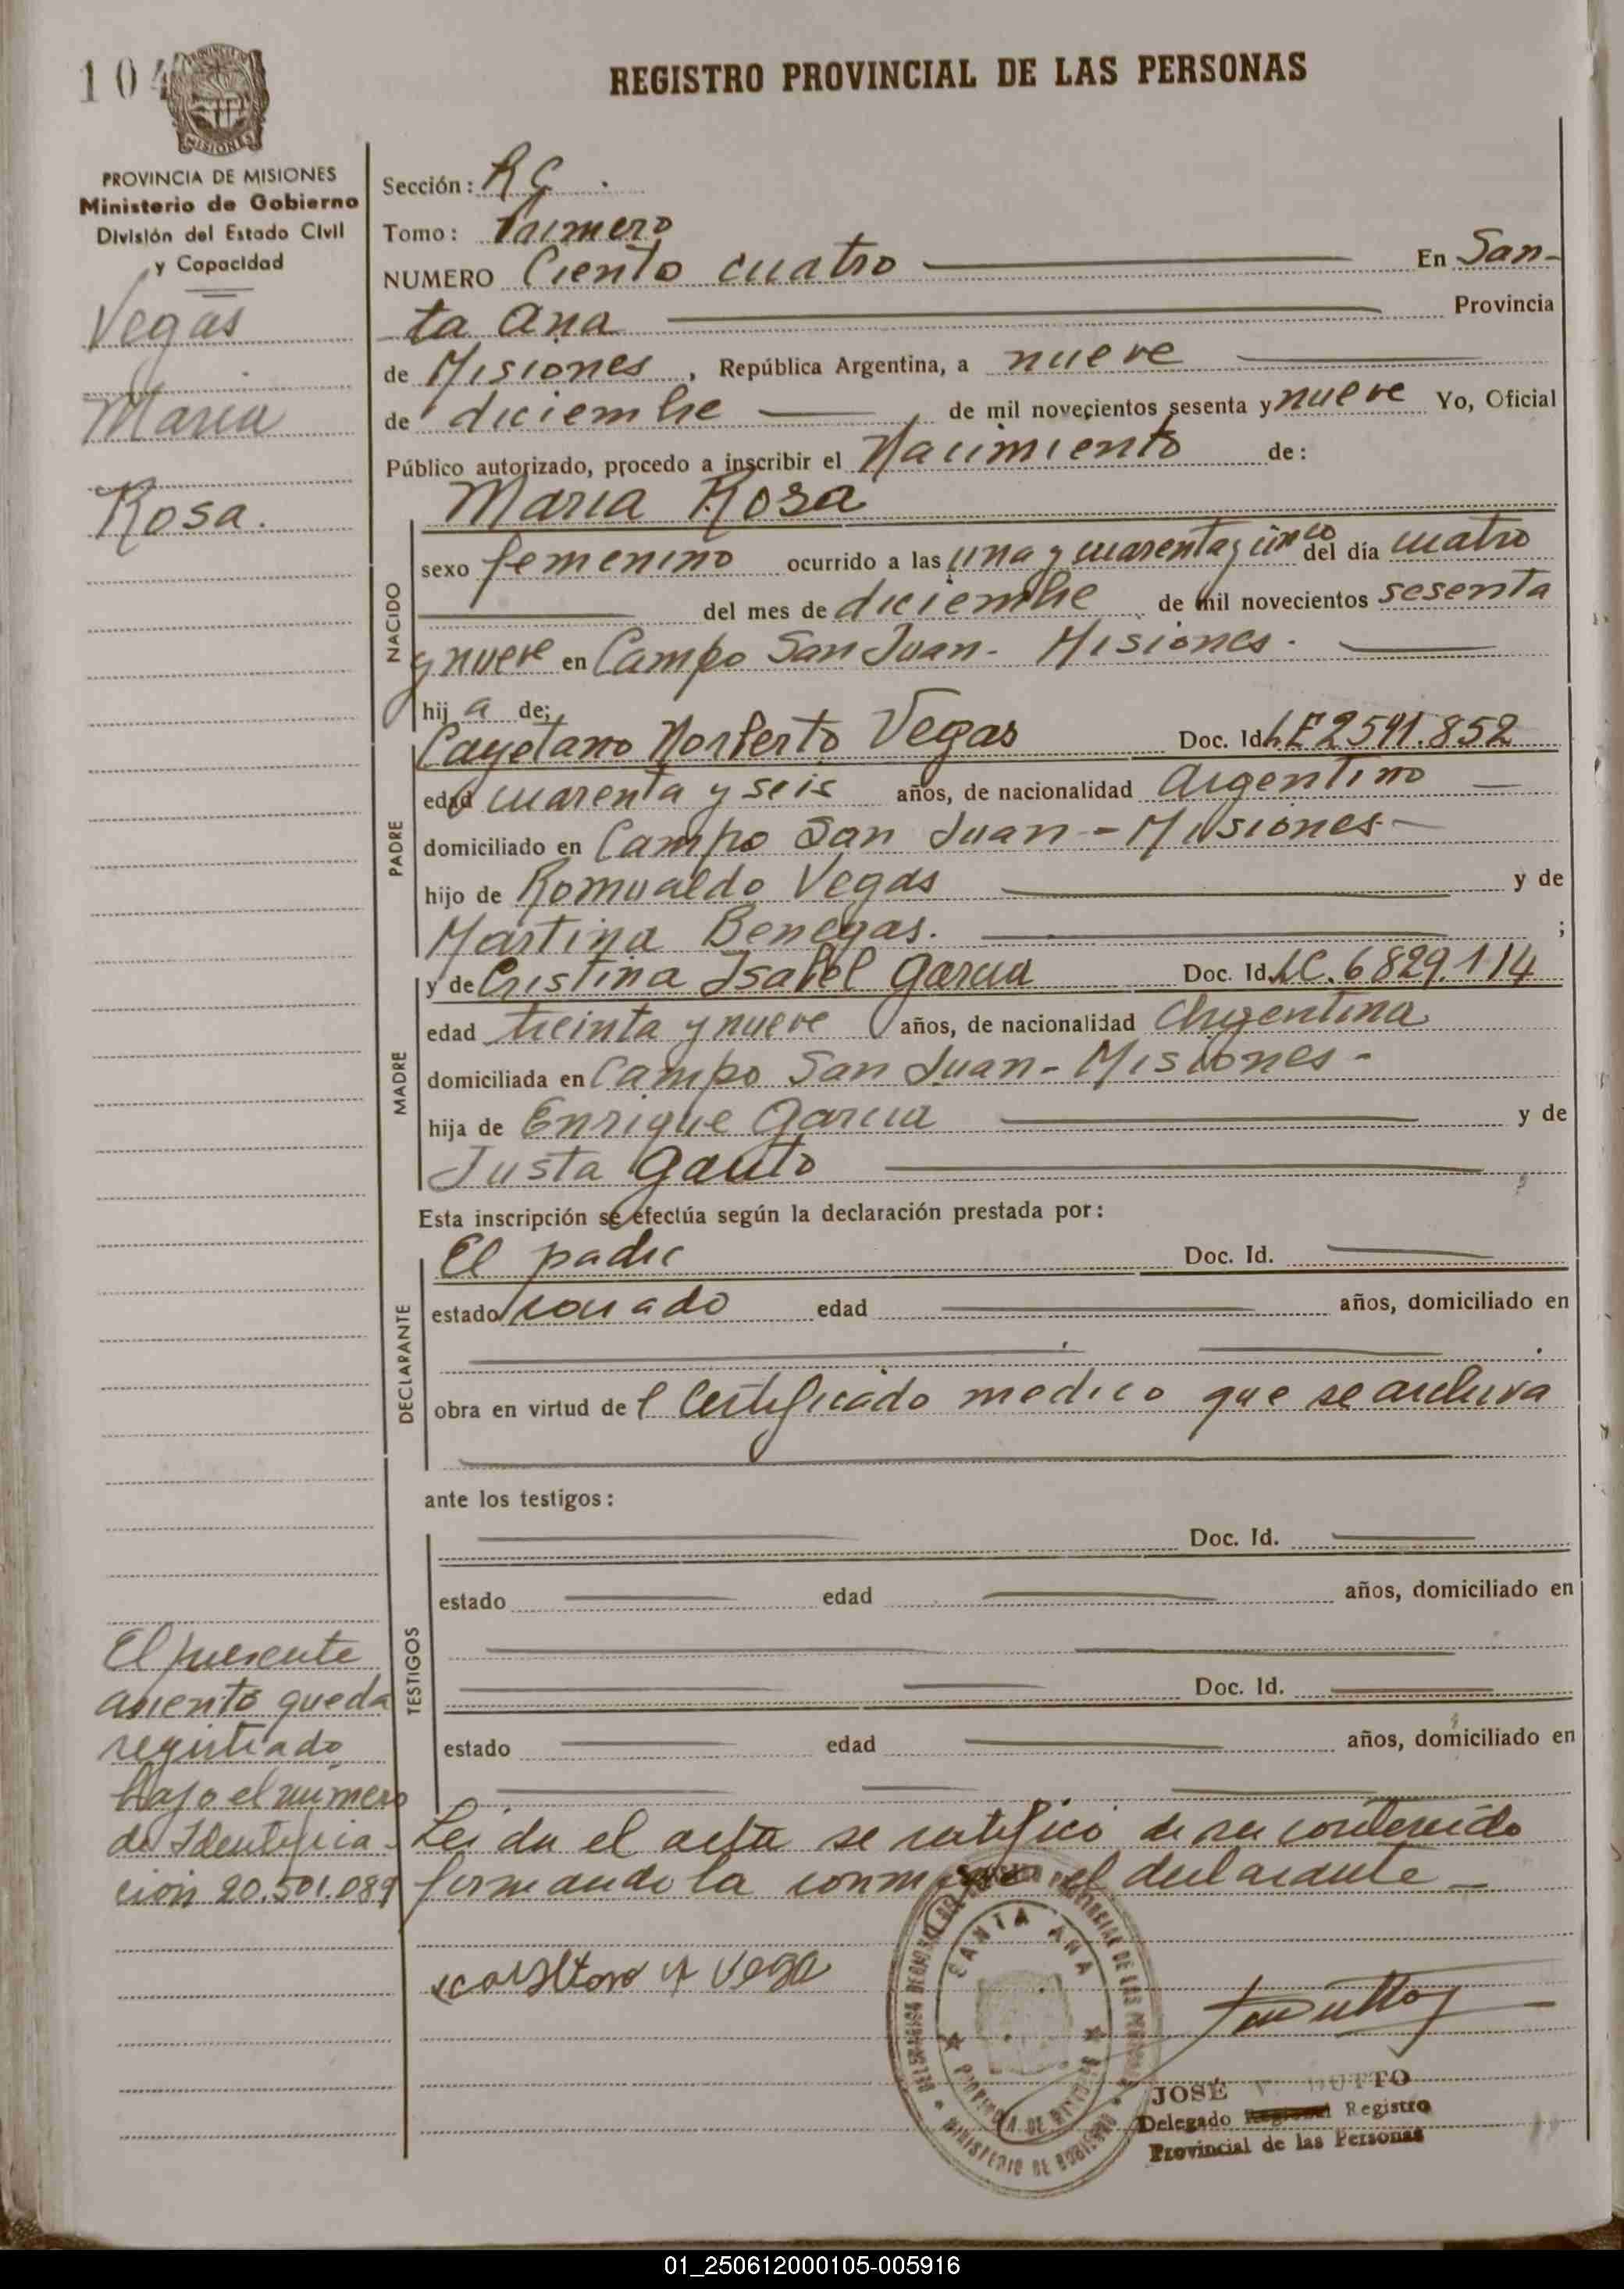 104
REGISTRO PROVINCIAL DE LAS PERSONAS
MISIONES
PROVINCIA DE MISIONES
Ministerio de Gobierno
División del Estado Civil
y Capacidad
Vegas
Maria
Rosa.
Sección: RG.
Tomo: Primero
NUMERO Ciento cuatro En San-
ta Ana Provincia
de Misiones, República Argentina, a nueve
de diciembre, de mil novecientos sesenta y nueve Yo, Oficial
Público autorizado, procedo a inscribir el Nacimiento de:
Maria Rosa
NACIDO
sexo femenino ocurrido a las una y cuarenta y cinco del día cuatro
del mes de diciembre de mil novecientos sesenta
y nueve en Campo San Juan - Misiones.
hija de:
PADRE
Cayetano Norberto Vegas Doc. Id. LE 2541.852
edad cuarenta y seis años, de nacionalidad Argentino
domiciliado en Campo San Juan - Misiones
hijo de Romualdo Vegas y de
Martina Benegas. ;
MADRE
y de Cristina Isabel Garcia Doc. Id. LC. 6829.114
edad treinta y nueve años, de nacionalidad Argentina
domiciliada en Campo San Juan - Misiones -
hija de Enrique Garcia y de
Justa Gauto
Esta inscripción se efectúa según la declaración prestada por:
DECLARANTE
El padre Doc. Id.
estado casado edad años, domiciliado en
obra en virtud del Certificado medico que se archiva
ante los testigos:
TESTIGOS
Doc. Id.
estado edad años, domiciliado en
Doc. Id.
estado edad años, domiciliado en
El presente
asiento queda
registrado
bajo el número
de Identifica-
ción 20.501.089
Leida el acta se ratificó de su contenido
firmando la conmigo el declarante
Vega
SANTA ANA
PROVINCIA DE MISIONES
MINISTERIO DE GOBIERNO
JOSÉ V. DUTTO
Delegado Regional Registro
Provincial de las Personas
01_250612000105-005916